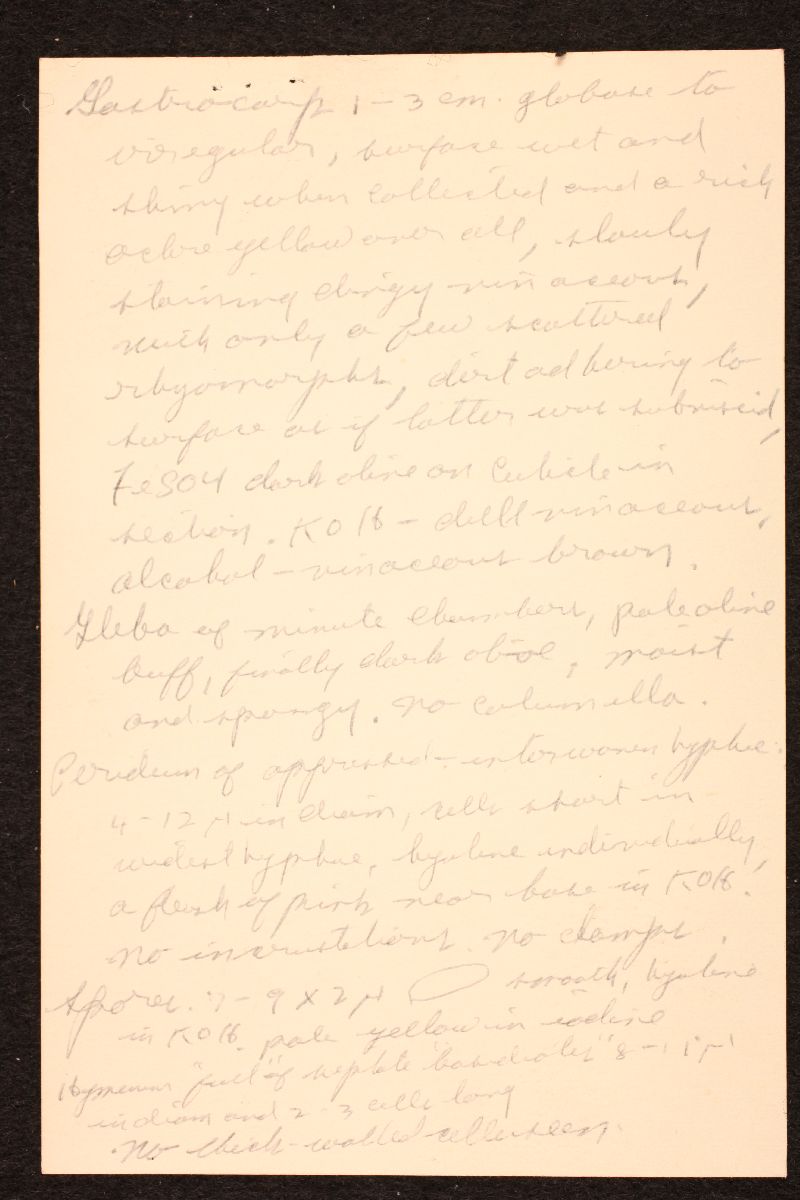 Gastrocarp 1-3 cm. globose to
irregular, surface wet and
shiny when collected and a rich
ochre yellow over all, slowly
staining dingy vinaceous,
with only a few scattered
rhyzomorphs, dirt adhering to
surface as if latter was subviscid,
FeSO4 dark olive on cuticle in
section. KOH - dull vinaceous,
alcohol - vinaceous brown.
Gleba of minute chambers, pale olive
buff, finally dark olive, moist
and spongy. no columella.
Peridium of appressed-interwoven hyphae
4-12 µ in diam, cells short in
widest hyphae, hyaline individually,
a flush of pink near base in KOH.
No incrustations. no clamps.
Spores. 7-9 X 2 µ smooth, hyaline
in KOH. pale yellow in iodine
Hymenium "full" of septate "basidioles" 8-11 µ
in diam and 2-3 cells long
No thick-walled cells seen.